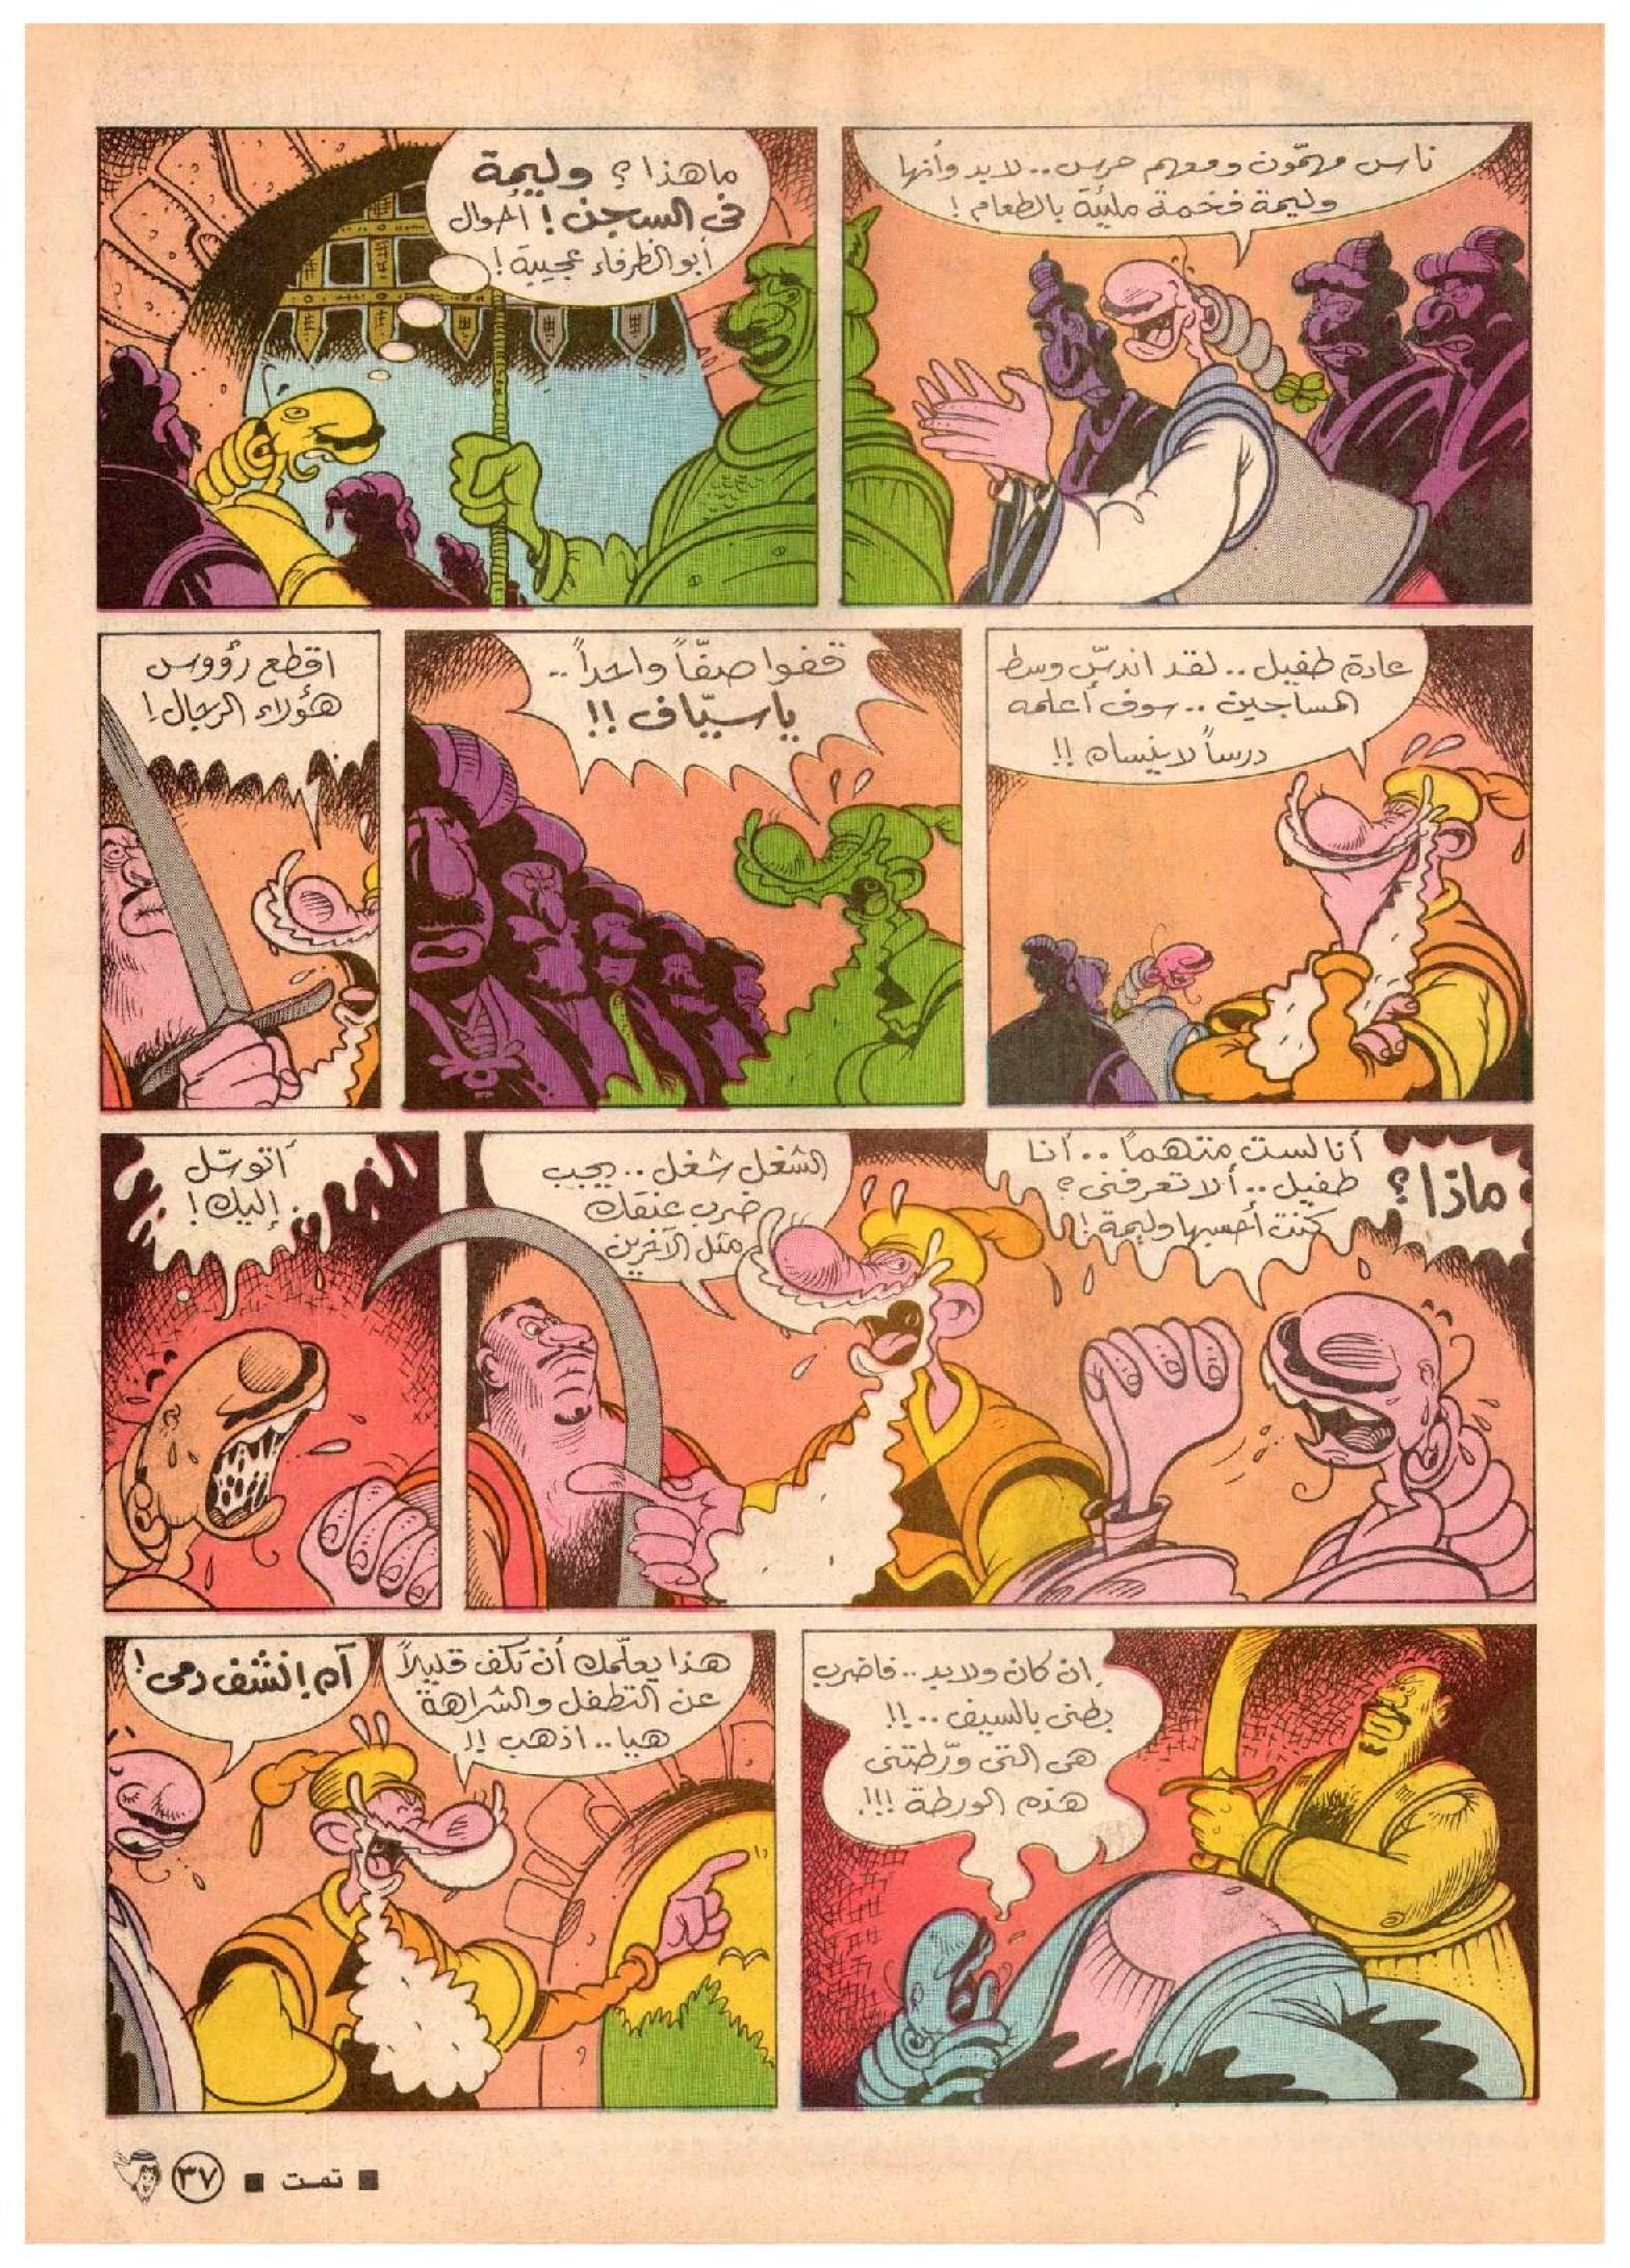 ناس مهمّون ومعهم حرس.. لابد وأنها
وليمة فخمة مليئة بالطعام!
ماهذا؟ وليمة
فى السجن! أحوال
أبو الظرفاء عجيبة!
عادة طفيل.. لقد اندسّ وسط
المساجين.. سوف أعلمه
درساً لاينساه!!
قفوا صفّاً واحداً..
ياسيّاف!!
اقطع رؤوس
هؤلاء الرجال!
ماذا؟
أنا لست متهماً.. أنا
طفيل.. ألا تعرفنى؟
كنت أحسبها وليمة!!
الشغل شغل.. يجب
ضرب عنقك
مثل الآخرين
أتوسّل
إليك!
إن كان ولابد.. فاضرب
بطنى بالسيف..!!
هى التى ورّطتنى
هذه الورطة!!!
هذا يعلّمك أن تكف قليلاً
عن التطفل والشراهة
هيا.. اذهب!!
آه! نشف دمى!
■ تمت ■ ٣٧